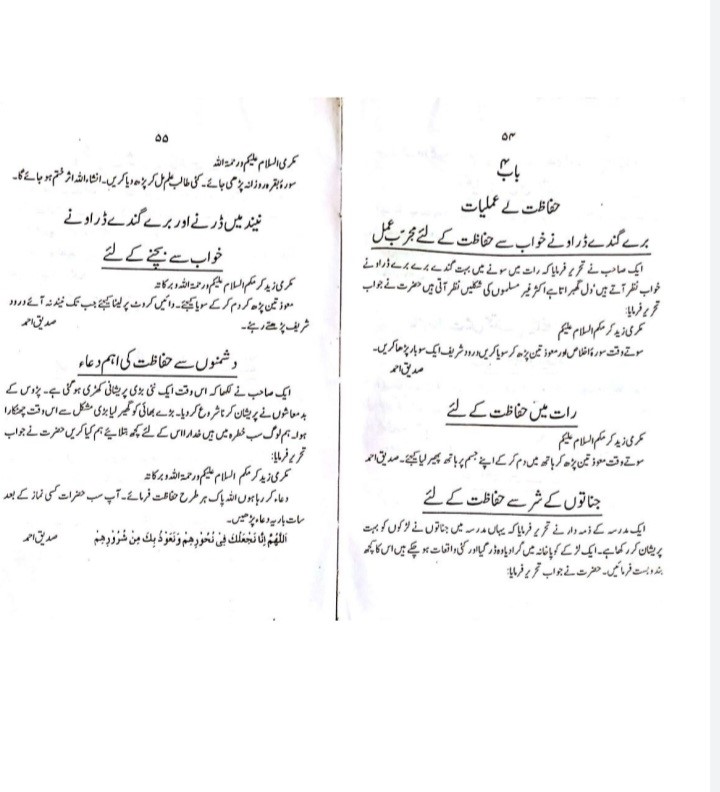 ۵۴
باب ۴
حفاظت کے عملیات
برے گندے ڈراونے خواب سے حفاظت کے لئے مجرّب عمل
ایک صاحب نے تحریر فرمایا کہ رات میں سونے میں بہت گندے برے برے ڈراونے
خواب نظر آتے ہیں دل گھبراتا ہے اکثر غیر مسلموں کی شکلیں نظر آتی ہیں حضرت نے جواب
تحریر فرمایا:
مکرمی زید کرمکم السلام علیکم
سوتے وقت سورۂ اخلاص اور معوذتین پڑھ کر سویا کریں درود شریف ایک سو بار پڑھا کریں۔
صدیق احمد
رات میں حفاظت کے لئے
مکرمی زید کرمکم السلام علیکم
سوتے وقت معوذتین پڑھ کر ہاتھ میں دم کر کے اپنے جسم پر ہاتھ پھیر لیا کیجئے۔ صدیق احمد
جناتوں کے شر سے حفاظت کے لئے
ایک مدرسہ کے ذمہ دار نے تحریر فرمایا کہ یہاں مدرسہ میں جناتوں نے لڑکوں کو بہت
پریشان کر رکھا ہے۔ ایک لڑکے کو پاخانہ میں گرا دیا وہ ڈر گیا اور کئی واقعات ہو چکے ہیں اس کا کچھ
بندوبست فرمائیں۔ حضرت نے جواب تحریر فرمایا:
۵۵
مکرمی السلام علیکم ورحمۃ اللہ
سورۂ بقرہ روزانہ پڑھی جائے۔ کئی طالب علم مل کر پڑھ دیا کریں۔ انشاء اللہ اثر ختم ہو جائے گا۔
نیند میں ڈرنے اور برے گندے ڈراونے
خواب سے بچنے کے لئے
مکرمی زید کرمکم السلام علیکم ورحمۃ اللہ وبرکاتہ
معوذتین پڑھ کر دم کر کے سویا کیجئے۔ دائیں کروٹ پر لیٹا کیجئے جب تک نیند نہ آئے درود
شریف پڑھتے رہئے۔ صدیق احمد
دشمنوں سے حفاظت کی اہم دعاء
ایک صاحب نے لکھا کہ اس وقت ایک نئی بڑی پریشانی کھڑی ہو گئی ہے۔ پڑوس کے
بدمعاشوں نے پریشان کرنا شروع کر دیا۔ بڑے بھائی کو گھیر لیا بڑی مشکل سے اس وقت چھٹکارا
ہوا۔ ہم لوگ سب خطرہ میں ہیں خدارا اس کے لئے کچھ بتلائیے ہم کیا کریں حضرت نے جواب
تحریر فرمایا:
مکرمی زید کرمکم السلام علیکم ورحمۃ اللہ وبرکاتہ
دعاء کر رہا ہوں اللہ پاک ہر طرح حفاظت فرمائے۔ آپ سب حضرات کسی نماز کے بعد
سات بار یہ دعاء پڑھیں۔
اَللّٰهُمَّ اِنَّا نَجْعَلُكَ فِیْ نُحُوْرِهِمْ وَنَعُوْذُ بِكَ مِنْ شُرُوْرِهِمْ صدیق احمد